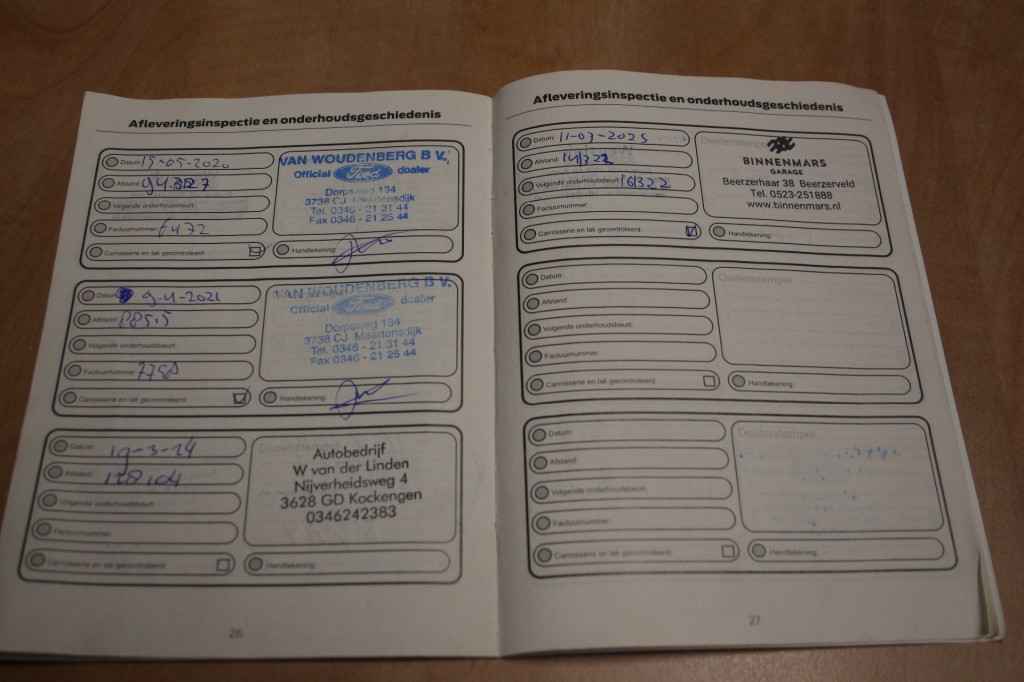 Afleveringsinspectie en onderhoudsgeschiedenis
Datum 15-05-2020
Afstand
Volgende onderhoudsbeurt:
Factuurnummer 6472
Carrosserie en lak gecontroleerd
VAN WOUDENBERG B.V.
Official Ford dealer
Dorpsweg 134
3738 CJ Maartensdijk
Tel. 0346 - 21 31 44
Fax 0346 - 21 25 44
Handtekening:
Datum 9-4-2021
Afstand
Volgende onderhoudsbeurt:
Factuurnummer
Carrosserie en lak gecontroleerd
VAN WOUDENBERG B.V.
Official Ford dealer
Dorpsweg 134
3738 CJ Maartensdijk
Tel. 0346 - 21 31 44
Fax 0346 - 21 25 44
Handtekening:
Datum 19-3-24
Afstand 128104
Volgende onderhoudsbeurt:
Factuurnummer:
Carrosserie en lak gecontroleerd
Autobedrijf
W van der Linden
Nijverheidsweg 4
3628 GD Kockengen
0346242383
Handtekening:
26
Afleveringsinspectie en onderhoudsgeschiedenis
Datum: 11-03-2025
Afstand: 141322
Volgende onderhoudsbeurt: 161322
Factuurnummer:
Carrosserie en lak gecontroleerd
BINNENMARS
GARAGE
Beerzerhaar 38 Beerzerveld
Tel. 0523-251888
www.binnenmars.nl
Handtekening:
Datum:
Afstand:
Volgende onderhoudsbeurt:
Factuurnummer:
Carrosserie en lak gecontroleerd
Dealerstempel
Handtekening:
Datum:
Afstand:
Volgende onderhoudsbeurt:
Factuurnummer:
Carrosserie en lak gecontroleerd
Dealerstempel
Handtekening:
27